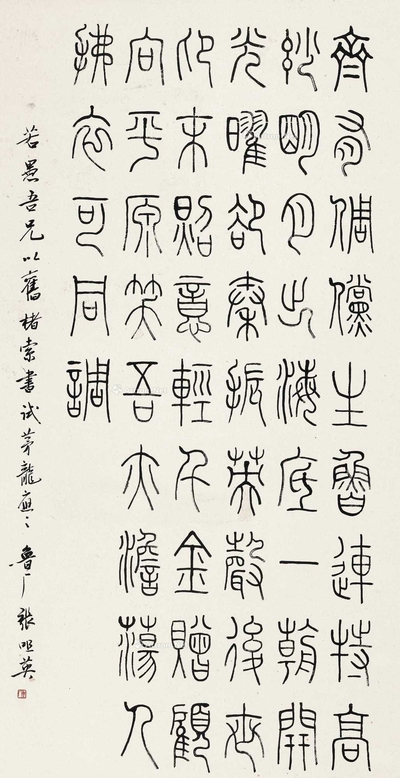 齊有倜儻生魯連特高
玅明月出海底一朝開
光曜卻秦振英聲後世
仰末照意輕千金贈顧
向平原笑吾亦澹蕩人
拂衣可同調
若愚吾兄以舊楮索書試茅龍應之 魯 張 英